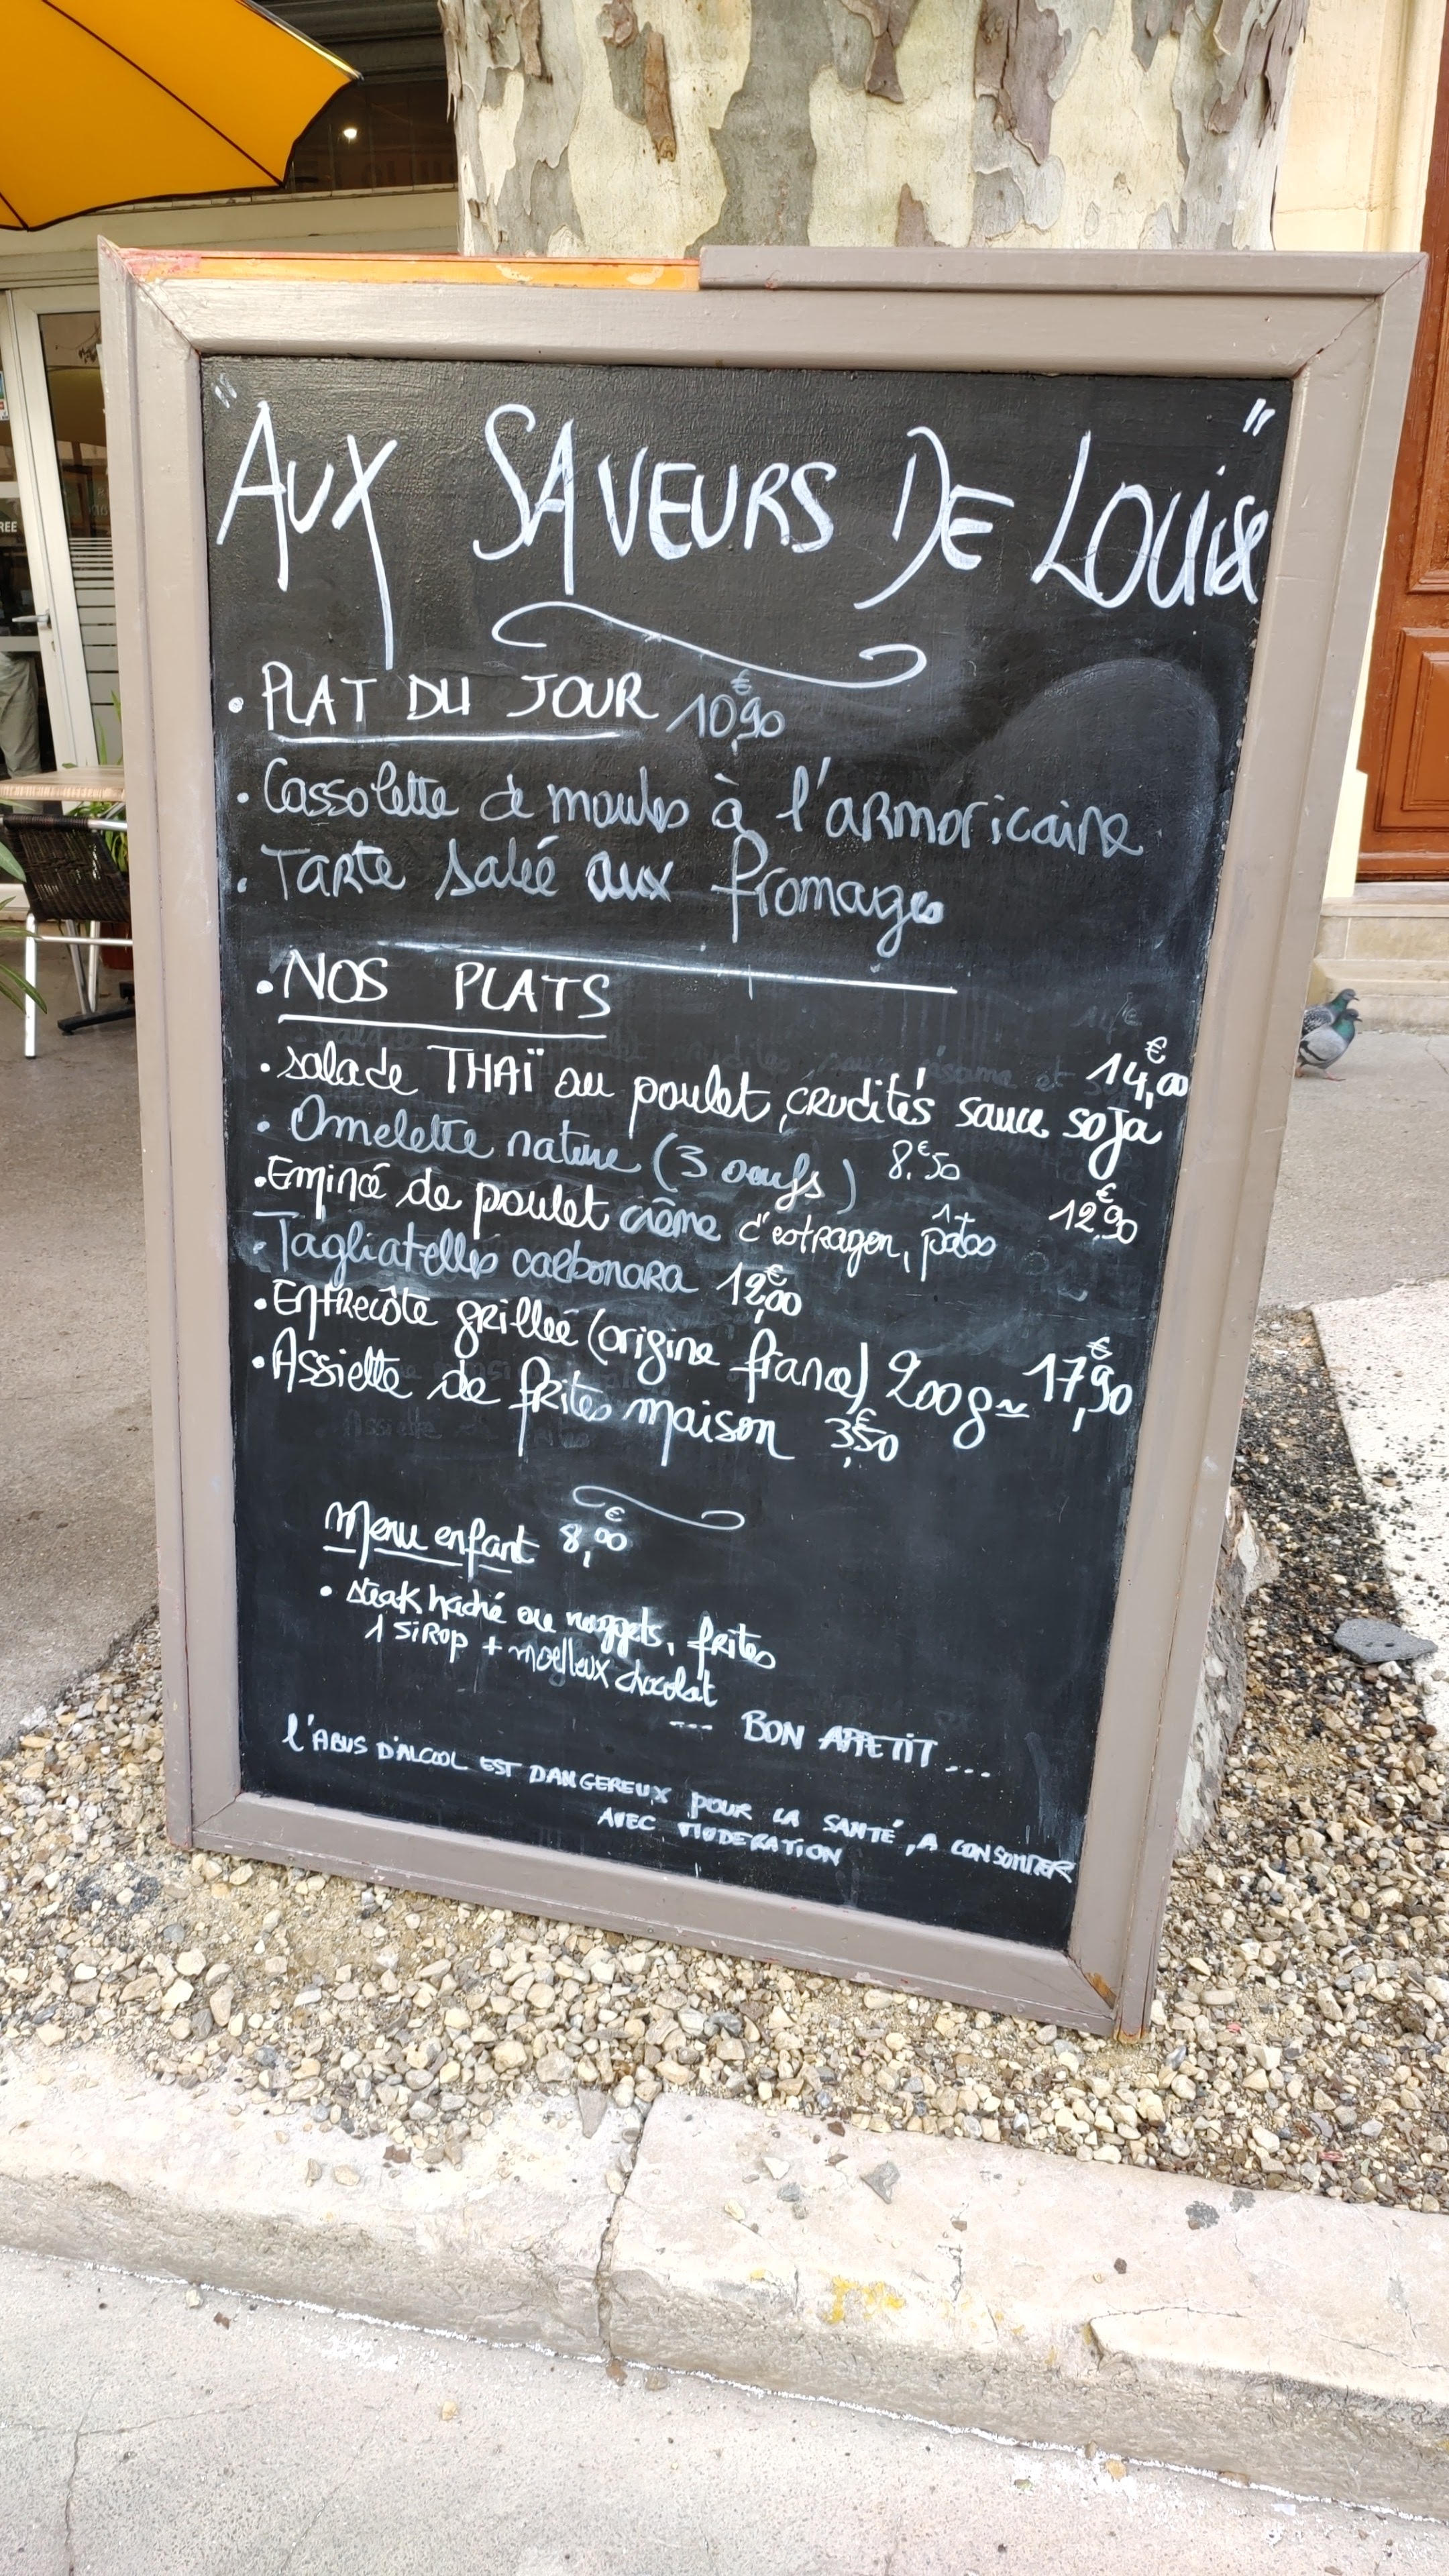 "AUX SAVEURS DE LOUISE"
• PLAT DU JOUR 10,90€
• Cassolette de moules à l'armoricaine
• Tarte salée aux fromages
• NOS PLATS
• salade THAÏ au poulet, crudités sauce soja 14,00€
• Omelette nature (3 oeufs) 8,50€
• Emincé de poulet crème d'estragon, pâtes 12,90€
• Tagliatelles carbonara 12,00€
• Entrecôte grillée (origine france) 200g ~ 17,90€
• Assiette de frites maison 3,50€
Menu enfant 8,00€
• steak haché ou nuggets, frites
1 SIROP + moelleux chocolat
--- BON APPETIT ...
L'ABUS D'ALCOOL EST DANGEREUX POUR LA SANTÉ, A CONSOMMER
AVEC MODERATION